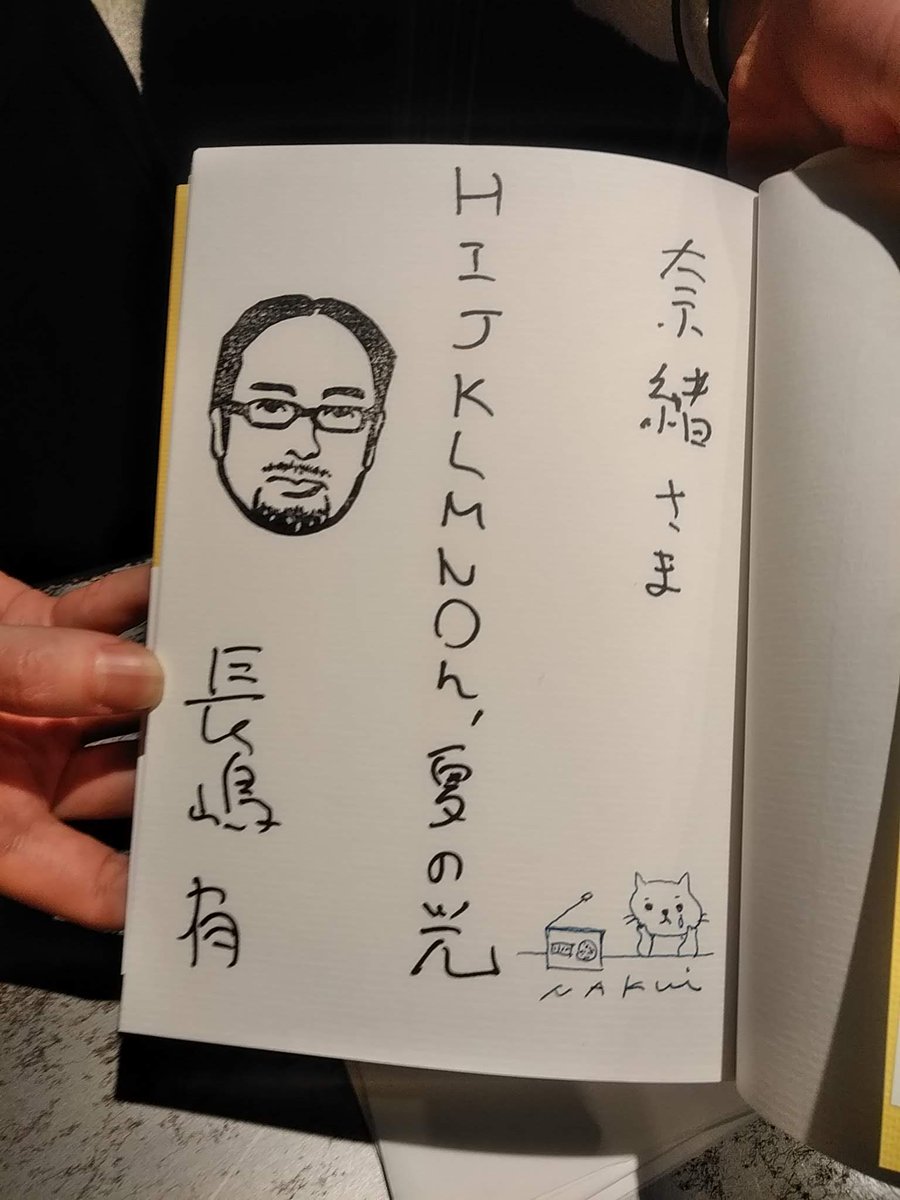 奈緒さま
HIJKLMNOん、夏の光
長嶋有
NAKUi